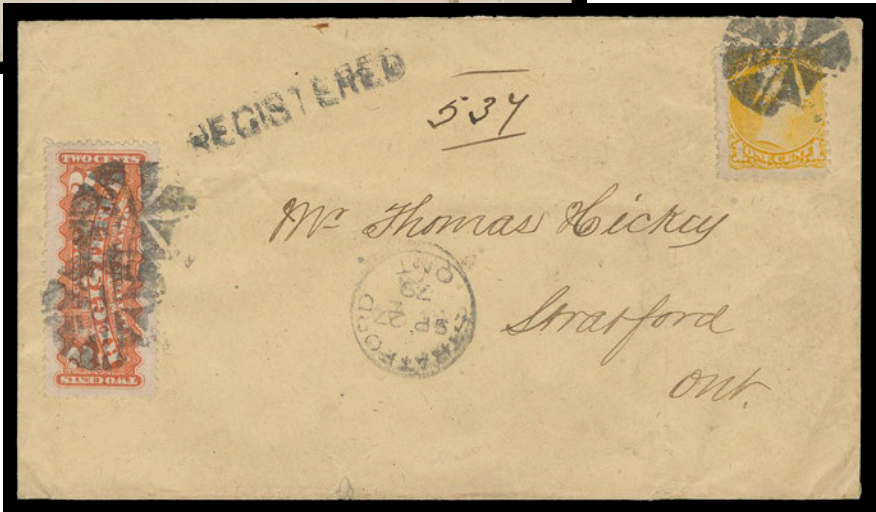 REGISTERED
537
TWO CENTS
REGISTERED
TWO CENTS
1 ONE CENT 1
Mr Thomas Hickey
Stratford
Ont.
STRATFORD
SP 27
79
ONT